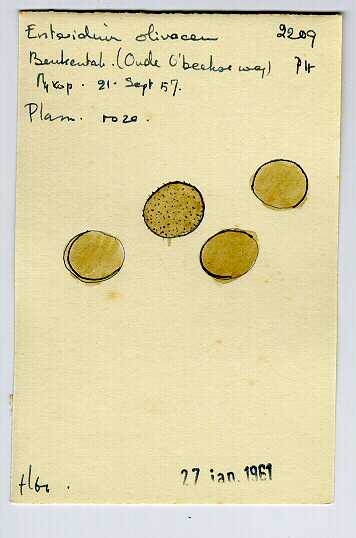 Enteridium olivaceum 2209
Beukentak. (Oude O'beekse weg) PH
Rykop. 21. Sept 57.
Plasm. roze.
27 jan. 1961